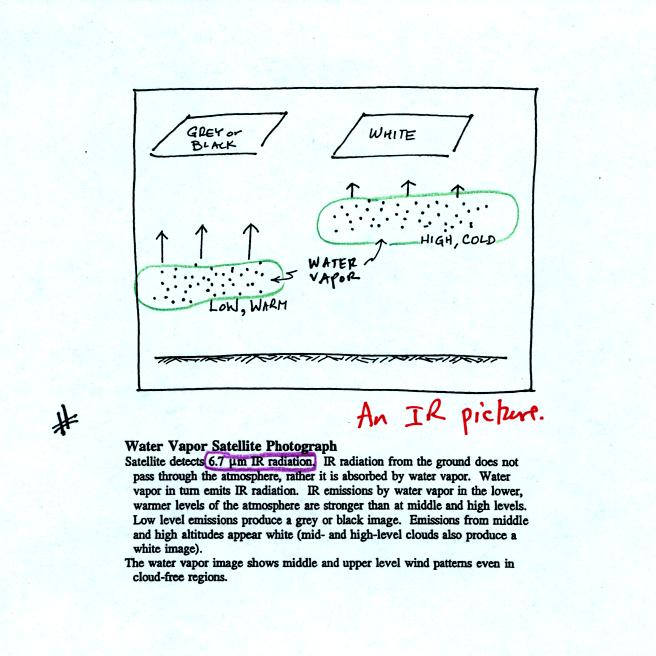 GREY or
BLACK
WHITE
HIGH, COLD
WATER
VAPOR
LOW, WARM
An IR picture.
#
Water Vapor Satellite Photograph
Satellite detects 6.7 µm IR radiation. IR radiation from the ground does not
pass through the atmosphere, rather it is absorbed by water vapor. Water
vapor in turn emits IR radiation. IR emissions by water vapor in the lower,
warmer levels of the atmosphere are stronger than at middle and high levels.
Low level emissions produce a grey or black image. Emissions from middle
and high altitudes appear white (mid- and high-level clouds also produce a
white image).
The water vapor image shows middle and upper level wind patterns even in
cloud-free regions.